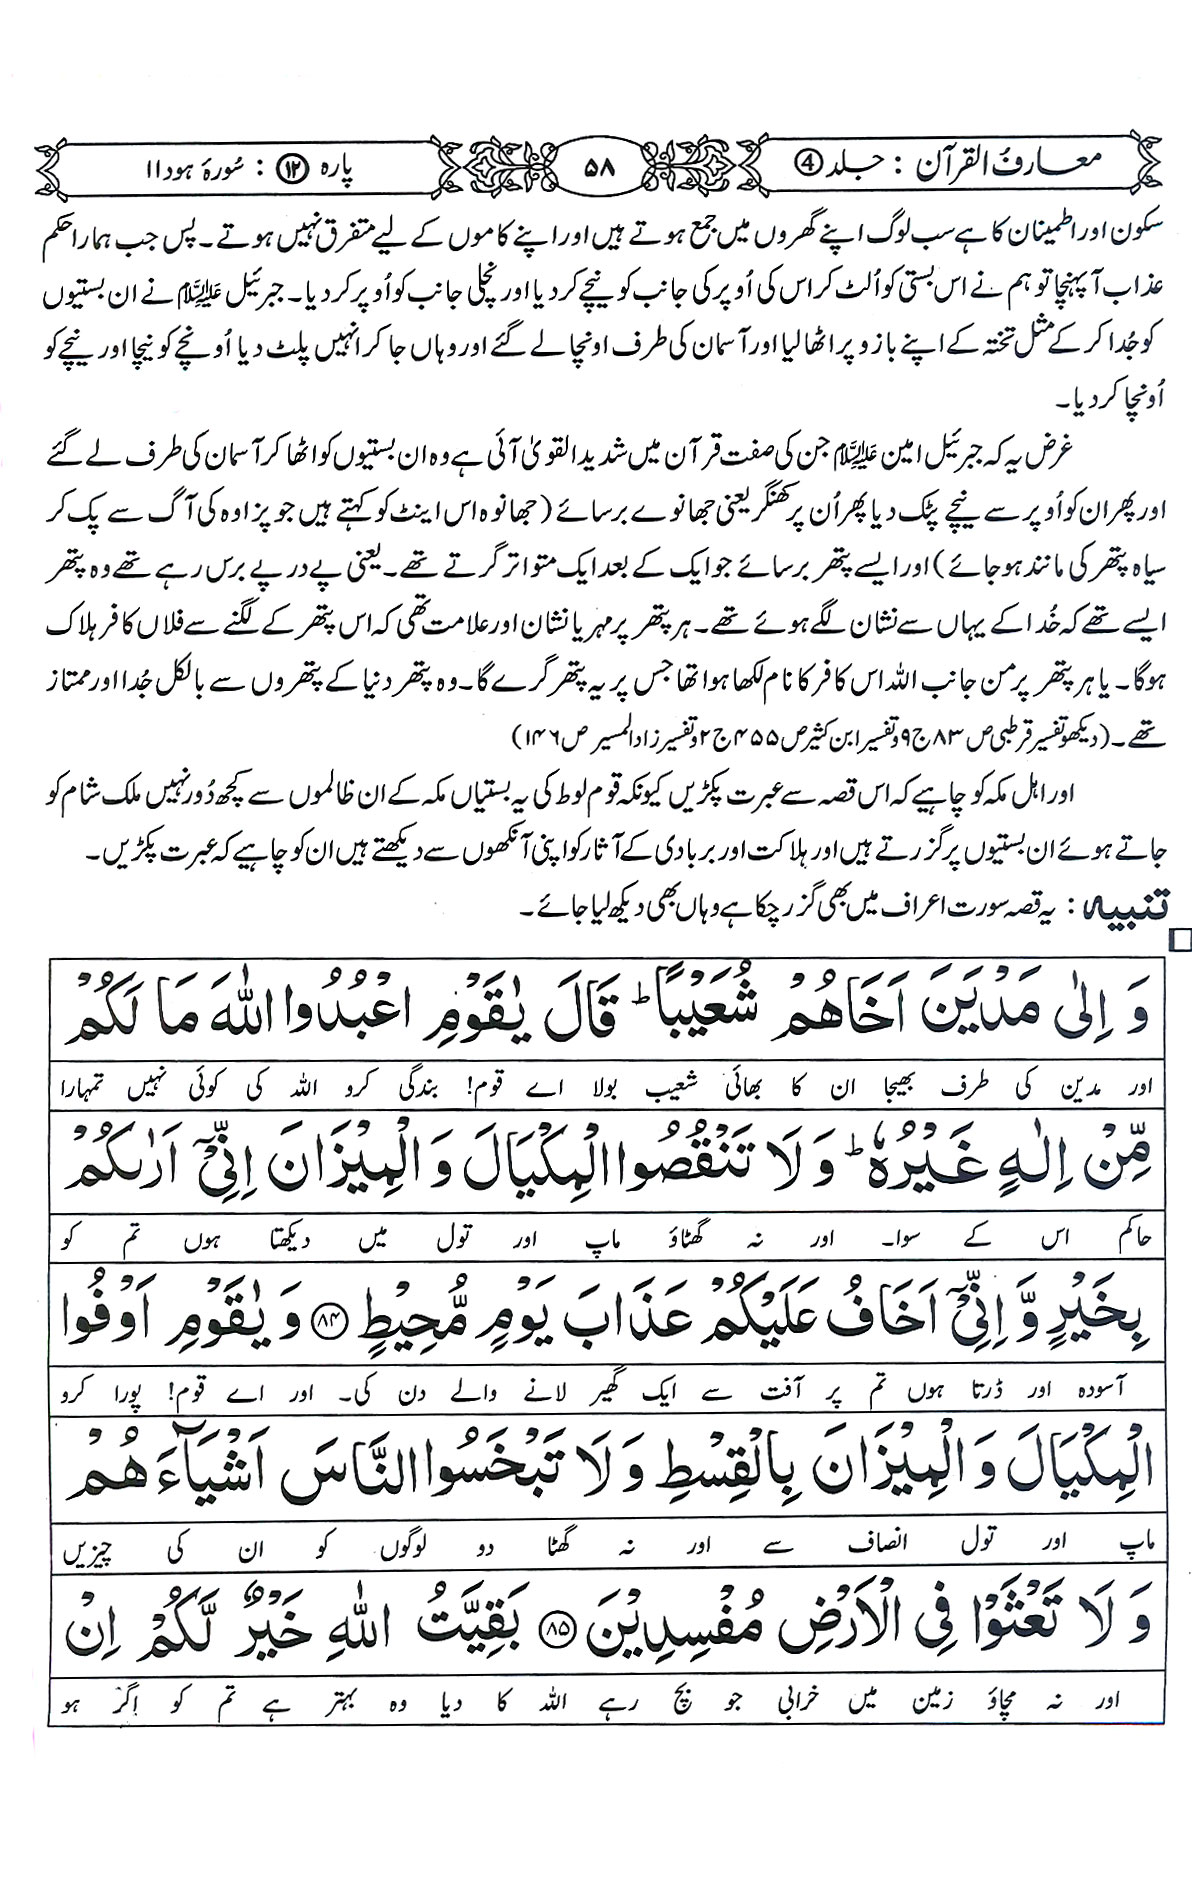 معارف القرآن : جلد ④
۵۸
پارہ ⑫ : سُورۂ ہود ۱۱
سکون اور اطمینان کا ہے سب لوگ اپنے گھروں میں جمع ہوتے ہیں اور اپنے کاموں کے لیے متفرق نہیں ہوتے۔ پس جب ہمارا حکم
عذاب آپہنچا تو ہم نے اس بستی کو اُلٹ کر اس کی اُوپر کی جانب کو نیچے کردیا اور نچلی جانب کو اُوپر کردیا۔ جبرئیل علیہ السلام نے ان بستیوں
کو جُدا کر کے مثل تختہ کے اپنے بازو پر اٹھا لیا اور آسمان کی طرف اونچا لے گئے اور وہاں جا کر انہیں پلٹ دیا اُونچے کو نیچا اور نیچے کو
اُونچا کردیا۔
غرض یہ کہ جبرئیل امین علیہ السلام جن کی صفت قرآن میں شدید القویٰ آئی ہے وہ ان بستیوں کو اٹھا کر آسمان کی طرف لے گئے
اور پھر ان کو اُوپر سے نیچے پٹک دیا پھر اُن پر کھنگر یعنی جھانوے برسائے (جھانوہ اس اینٹ کو کہتے ہیں جو پزاوہ کی آگ سے پک کر
سیاہ پتھر کی مانند ہوجائے) اور ایسے پتھر برسائے جو ایک کے بعد ایک متواتر گرتے تھے۔ یعنی پے در پے برس رہے تھے وہ پتھر
ایسے تھے کہ خُدا کے یہاں سے نشان لگے ہوئے تھے۔ ہر پتھر پر مہر یا نشان اور علامت تھی کہ اس پتھر کے لگنے سے فلاں کافر ہلاک
ہوگا۔ یا ہر پتھر پر من جانب اللہ اس کافر کا نام لکھا ہوا تھا جس پر یہ پتھر گرے گا۔ وہ پتھر دنیا کے پتھروں سے بالکل جُدا اور ممتاز
تھے۔ (دیکھو تفسیر قرطبی ص ۸۳ ج ۹ و تفسیر ابن کثیر ص ۴۵۵ ج ۲ و تفسیر زاد المسیر ص ۱۴۶)
اور اہل مکہ کو چاہیے کہ اس قصہ سے عبرت پکڑیں کیونکہ قوم لوط کی یہ بستیاں مکہ کے ان ظالموں سے کچھ دُور نہیں ملک شام کو
جاتے ہوئے ان بستیوں پر گزرتے ہیں اور ہلاکت اور بربادی کے آثار کو اپنی آنکھوں سے دیکھتے ہیں ان کو چاہیے کہ عبرت پکڑیں۔
تنبیہ: یہ قصہ سورت اعراف میں بھی گزر چکا ہے وہاں بھی دیکھ لیا جائے۔
وَ اِلٰی مَدْیَنَ اَخَاهُمْ شُعَیْبًا ؕ قَالَ یٰقَوْمِ اعْبُدُوا اللّٰهَ مَا لَكُمْ
اور مدین کی طرف بھیجا ان کا بھائی شعیب بولا اے قوم! بندگی کرو اللہ کی کوئی نہیں تمہارا
مِّنْ اِلٰهٍ غَیْرُهٗ ؕ وَ لَا تَنْقُصُوا الْمِكْیَالَ وَ الْمِیْزَانَ اِنِّیْۤ اَرٰىكُمْ
حاکم اس کے سوا۔ اور نہ گھٹاؤ ماپ اور تول میں دیکھتا ہوں تم کو
بِخَیْرٍ وَّ اِنِّیْۤ اَخَافُ عَلَیْكُمْ عَذَابَ یَوْمٍ مُّحِیْطٍ ۝۸۴ وَ یٰقَوْمِ اَوْفُوا
آسودہ اور ڈرتا ہوں تم پر آفت سے ایک گھیر لانے والے دن کی۔ اور اے قوم! پورا کرو
الْمِكْیَالَ وَ الْمِیْزَانَ بِالْقِسْطِ وَ لَا تَبْخَسُوا النَّاسَ اَشْیَآءَهُمْ
ماپ اور تول انصاف سے اور نہ گھٹا دو لوگوں کو ان کی چیزیں
وَ لَا تَعْثَوْا فِی الْاَرْضِ مُفْسِدِیْنَ ۝۸۵ بَقِیَّتُ اللّٰهِ خَیْرٌ لَّكُمْ اِنْ
اور نہ مچاؤ زمین میں خرابی جو بچ رہے اللہ کا دیا وہ بہتر ہے تم کو اگر ہو